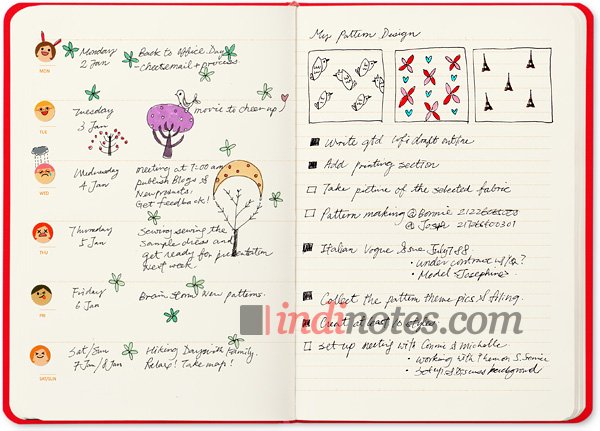 MON
Monday
2 Jan
Back to office Day
- check email + process
TUE
Tuesday
3 Jan
movie to cheer up!
WED
Wednesday
4 Jan
meeting at 9:00 am
publish Blogs &
New products,
Get feedback!
THU
Thursday
5 Jan
Sewing sewing the
Sample dress and
get ready for presentation
Next week.
FRI
Friday
6 Jan
Brain storm New patterns.
SAT/SUN
Sat/Sun
7 Jan/8 Jan
Hiking Day with Family.
Relax! Take map!
My Pattern Design
Write 1st draft outline
Add printing section
Take picture of the selected fabric
Pattern marking @ Bonnie
@ Josh
Italian Vogue Issue July
• under contract
• Model-Josephine
Collect the pattern theme pics & filing.
Creat at least 10 styles
indinotes.com
set up meeting with Connie & Michelle
• working with them on S. Service
• Set up & Discuss background